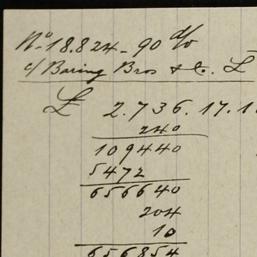 No 18.824 - 90 d/v
c/ Baring Bros & Co. £
£ 2.736.17.1
240
109440
5472
656640
204
10
656854